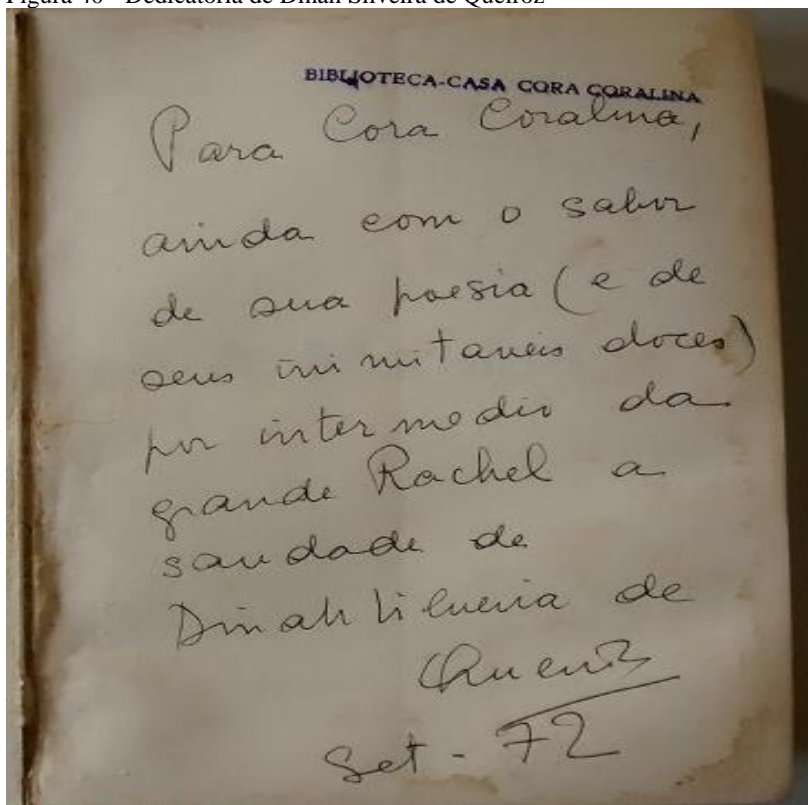 Figura 46 - Dedicatória de Dinah Silveira de Queiroz
BIBLIOTECA-CASA CORA CORALINA
Para Cora Coralina,
ainda com o sabor
de sua poesia (e de
seus inimitaveis doces)
por intermedio da
grande Rachel a
saudade de
Dinah Silveira de
Queiroz
Set - 72